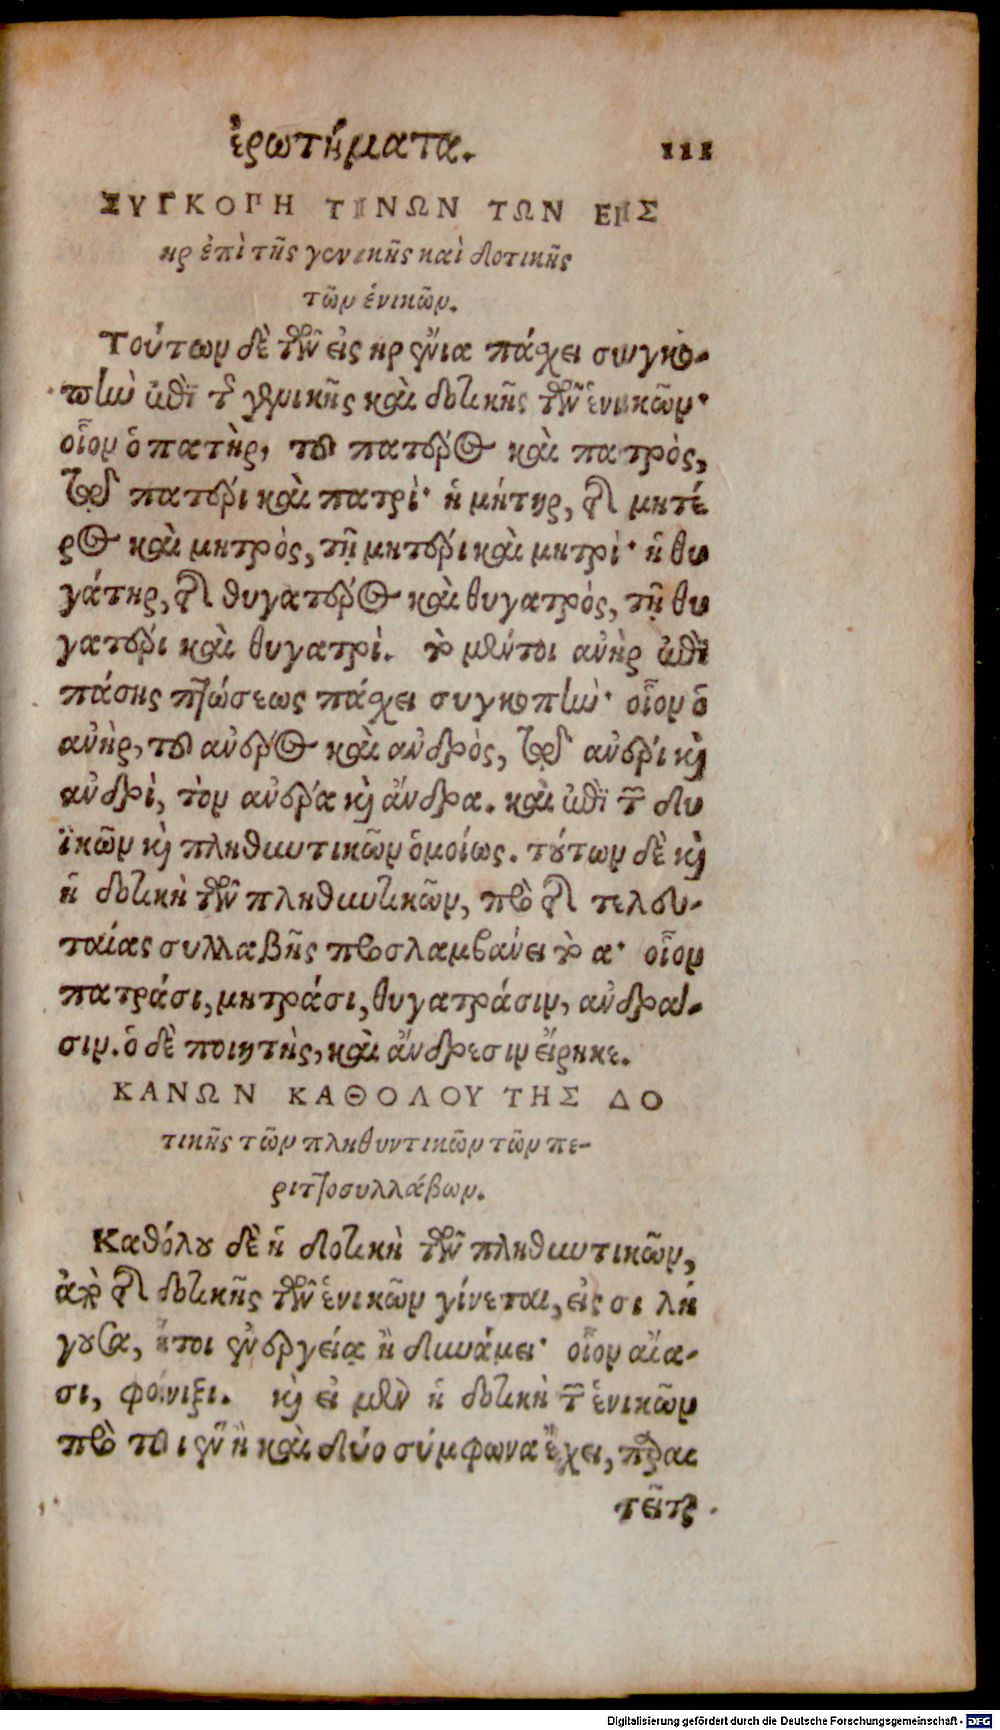 ἐρωτήματα. 111
ΣΥΓΚΟΠΗ ΤΙΝΩΝ ΤΩΝ ΕΙΣ
ηρ ἐπὶ τῆς γενικῆς καὶ δοτικῆς
τῶν ἑνικῶν.
Τούτων δὲ τῶν εἰς ηρ ἔνια πάχει συγκο-
πὴν ἐπὶ τῆς γενικῆς καὶ δοτικῆς τῶν ἑνικῶν·
οἷον ὁ πατὴρ, τοῦ πατέρος καὶ πατρὸς,
τῷ πατέρι καὶ πατρὶ· ἡ μήτηρ, τῆς μητέ
ρος καὶ μητρὸς, τῇ μητέρι καὶ μητρὶ· ἡ θυ
γάτηρ, τῆς θυγατέρος καὶ θυγατρὸς, τῇ θυ
γατέρι καὶ θυγατρὶ. τὸ μέντοι ἀνὴρ ἐπὶ
πάσης πτώσεως πάχει συγκοπὴν· οἷον ὁ
ἀνὴρ, τοῦ ἀνέρος καὶ ἀνδρὸς, τῷ ἀνέρι καὶ
ἀνδρὶ, τὸν ἀνέρα καὶ ἄνδρα. καὶ ἐπὶ τῶν δυ
ϊκῶν καὶ πληθυντικῶν ὁμοίως. τούτων δὲ καὶ
ἡ δοτικὴ τῶν πληθυντικῶν, πρὸ τῆς τελευ-
ταίας συλλαβῆς προσλαμβάνει τὸ α· οἷον
πατράσι, μητράσι, θυγατράσιν, ἀνδρά-
σιν. ὁ δὲ ποιητὴς, καὶ ἄνδρεσιν εἴρηκε.
ΚΑΝΩΝ ΚΑΘΟΛΟΥ ΤΗΣ ΔΟ
τικῆς τῶν πληθυντικῶν τῶν πε-
ριττοσυλλάβων.
Καθόλου δὲ ἡ δοτικὴ τῶν πληθυντικῶν,
ἀπὸ τῆς δοτικῆς τῶν ἑνικῶν γίνεται, εἰς σι λή
γουσα, ἤτοι ἐνεργείᾳ ἢ δυνάμει· οἷον αἴα-
σι, φοίνιξι. καὶ εἰ μὲν ἡ δοτικὴ τῶν ἑνικῶν
πρὸ τοῦ ι ἓν ἢ καὶ δύο σύμφωνα ἔχει,
Digitalisierung gefördert durch die Deutsche Forschungsgemeinschaft - DFG